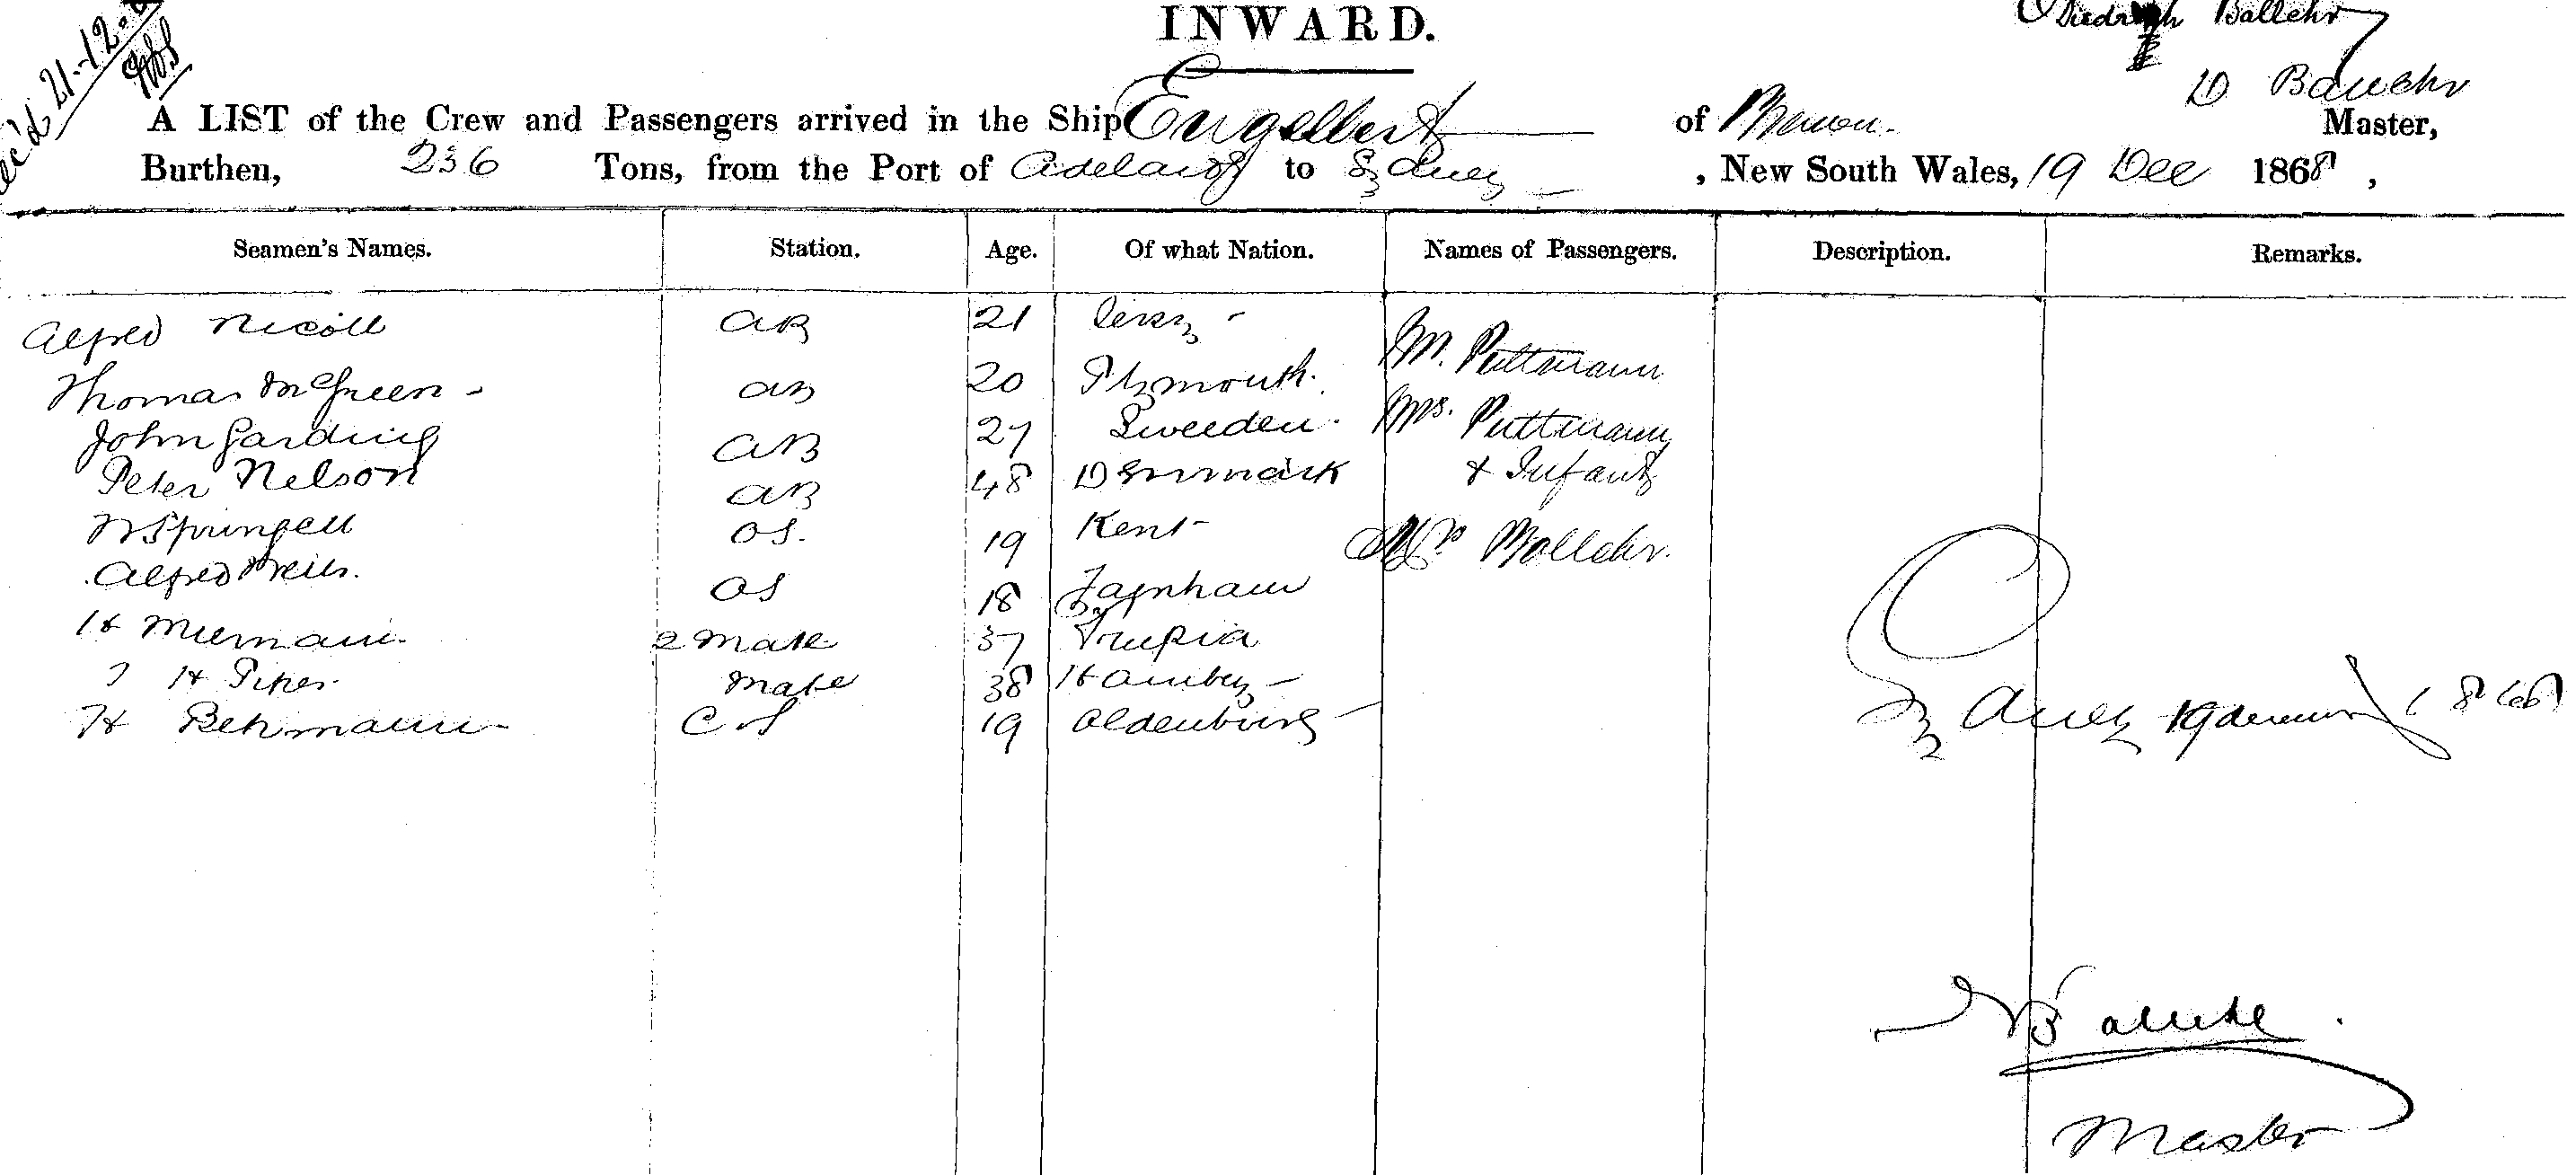 INWARD.
Diedrich Ballehr
Rec'd 21.12.
A LIST of the Crew and Passengers arrived in the Ship Engelbert of Bremen. D Ballehr Master,
Burthen, 236 Tons, from the Port of Adelaide to Sydney, New South Wales, 19 Dec 1868,
Seamen's Names. Station. Age. Of what Nation. Names of Passengers. Description. Remarks.
Alfred Nicoll AB 21 Jersy Mr. Puttmann
Thomas McGreen AB 20 Plymouth. Mrs. Puttmann
John Garding AB 27 Sweeden. & Infant
Peter Nelson AB 48 Denmark
W Springell OS. 19 Kent Mrs Bollehr.
Alfred OS 18 Farnham
H 2 Mate 37 Prussia
H Mate 38 Hamburg
H Behmann 19 Oldenburg
Sydney 19 december 1868
Master